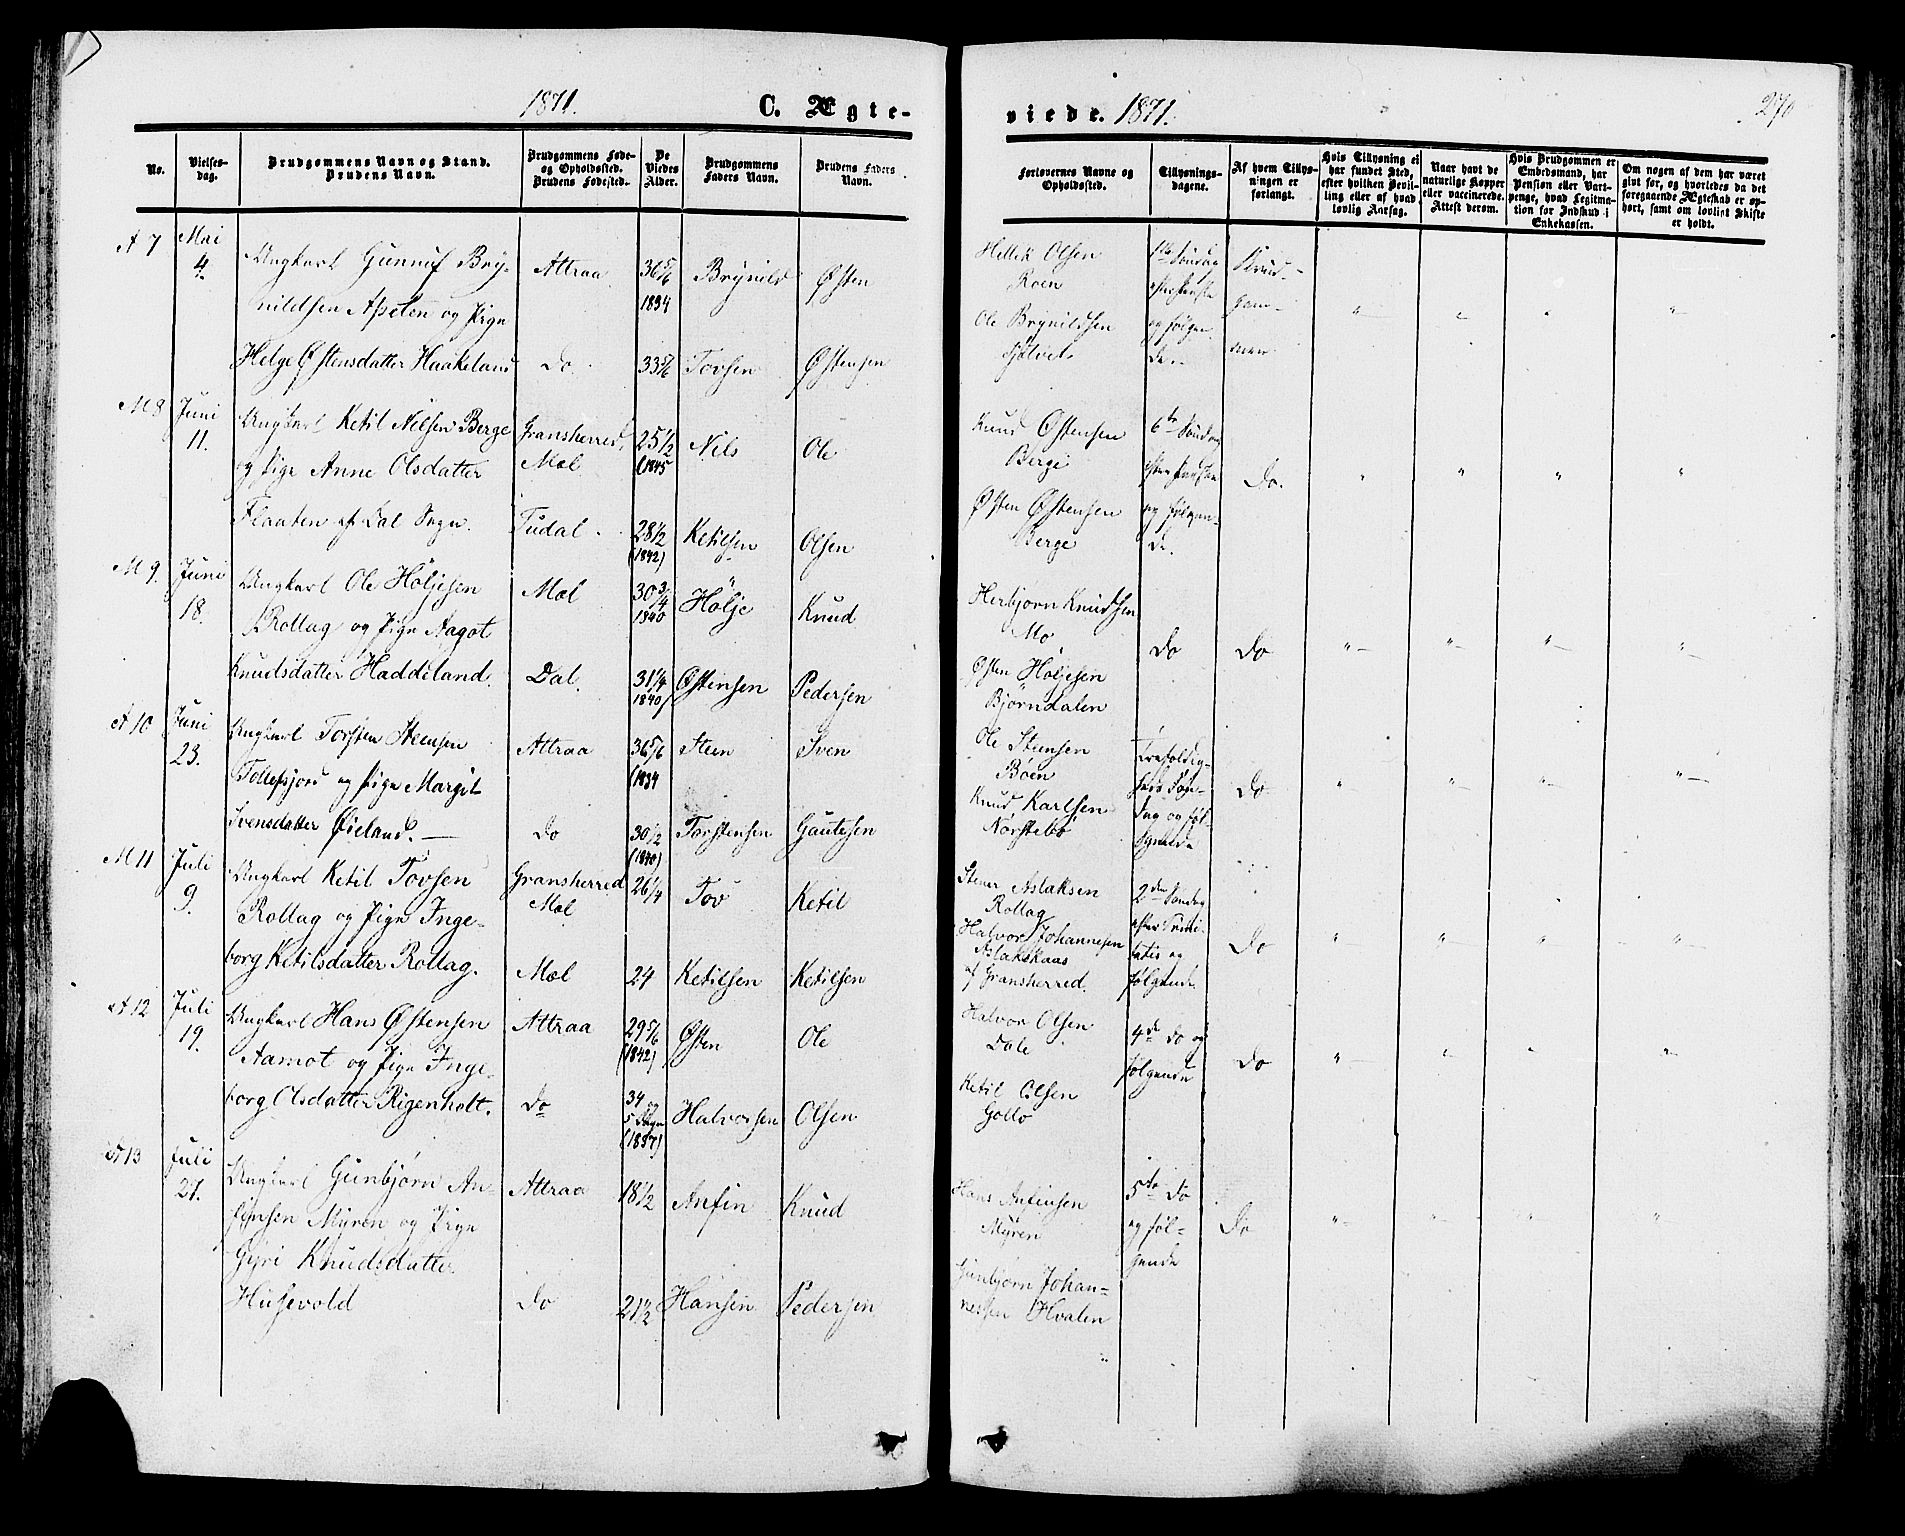 1871. C. Ægte-
viede. 1871.
270
No.
Vielses-
dag.
Brudgommens Navn og Stand.
Brudens Navn.
Brudgommens Føde-
og Opholdssted.
Brudens Fødested.
De
Viedes
Alder.
Brudgommens
Faders Navn.
Brudens Faders
Navn.
Forlovernes Navne og
Opholdssted.
Tillysnings-
dagene.
Af hvem Tillys-
ningen er
forlangt.
Hvis Tillysning ei
har fundet Sted,
efter hvilken Bevil-
ling eller af hvad
lovlig Aarsag.
Naar havt de
naturlige Kopper
eller vaccinerede.
Attest derom.
Hvis Brudgommen er
Embedsmand, har
Pension eller Vart-
penge, hvad Legitima-
tion for Indskud i
Enkekassen.
Om nogen af dem har været
givt før, og hvorledes da det
foregaaende Ægteskab er op-
hørt, samt om lovligt Skifte
er holdt.
A 7
Mai
4.
Ungkarl Gunnuf Bry-
nildsen Apseten og Pige
Helge Østensdatter Haakeland
Attraa
Do
36 5/6
1834
33 5/6
Brynild
Tovsen
Østen
Østensen
Hellek Olsen
Roen
Ole Brynildsen
1ste Søndag
og følgen
de
Brud-
gom-
men
M 8
Juni
11.
Ungkarl Ketil Nilsen Berge
og Pige Anne Olsdatter
Flaaten af Dal Sogn.
Gransherred,
Mæl
Tudal.
25 1/2
(1845
28 1/2
(1842)
Nils
Ketilsen
Ole
Olsen
Knud Østensen
Berge
Østen Østensen
Berge
6te Søndag
og følgen-
de.
Do.
M 9.
Juni
18.
Ungkarl Ole Höljesen
Rollag og Pige Aagot
Knudsdatter Haddeland.
Mæl
Dal.
30 3/4
1840
31 1/4
1840)
Hölje
Østensen
Knud
Pedersen
Herbjørn Knudsen
Mo
Østen Höljesen
Bjørndalen
Do
Do
A 10
Juni
23.
Ungkarl Torsten Steensen
Tollefsjord og Pige Margit
Svensdatter Øieland.
Attraa
Do
36 5/6
(1834
30 1/2
(1840)
Steen
Torstensen
Sven
Gautesen
Ole Stensen
Böen
Knud Karlsen
Nørstebø
Trefoldig-
dag og føl-
gende
Do
M 11
Juli
9.
Ungkarl Ketil Tovsen
Rollag og Pige Inge-
borg Ketilsdatter Rollag.
Gransherred
Mæl
Mæl
26 1/4
24
Tov
Ketilsen
Ketil
Ketilsen
Stener Aslaksen
Rollag
Halvor Johannesen
Aslakskaas
af Gransherred.
2den Søndag
efter Trini-
tatis og
følgende
Do
A 12
Juli
19.
Ungkarl Hans Østensen
Aamot og Pige Inge-
borg Olsdatter Rigenholt.
Attraa
Do
29 5/6
(1842)
34 og
5 Dage
(1837)
Østen
Halvorsen
Ole
Olsen
Halvor Olsen
Dale
Ketil Olsen
Gollo
4de Do og
følgende
Do
A 13
Juli
27.
Ungkarl Gunbjørn An-
finsen Myren og Pige
Gyri Knudsdatter
Husevold
Attraa
Do
18 1/2
21 1/2
Anfin
Hansen
Knud
Pedersen
Hans Anfinsen
Myren
Gunbjørn Johan-
nessen Hvalen
5te Do
og føl-
gende
Do